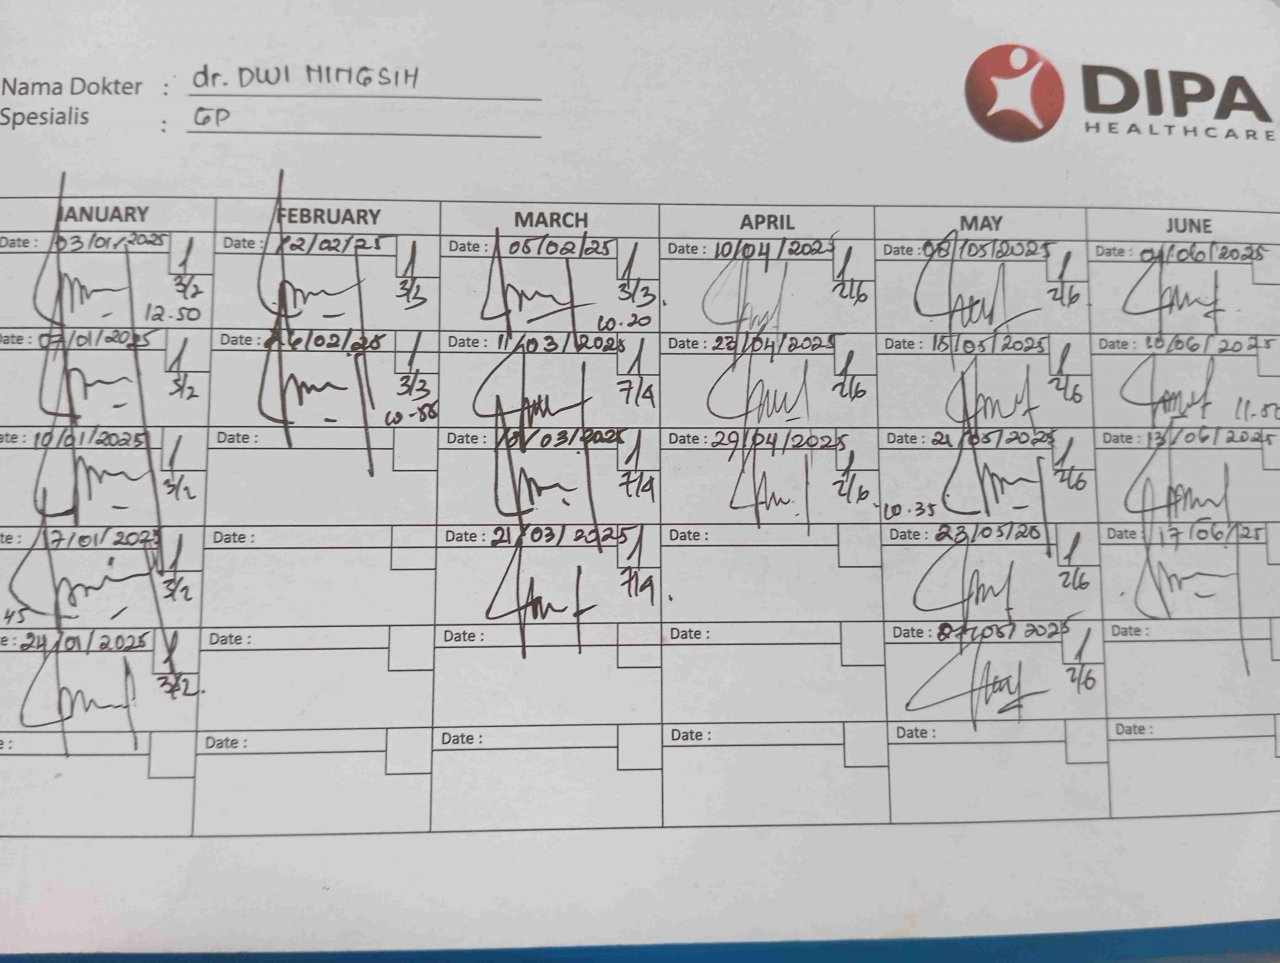 Nama Dokter : dr. DWI NINGSIH
Spesialis : GP
DIPA
HEALTHCARE
JANUARY FEBRUARY MARCH APRIL MAY JUNE
Date : 03/01/2025 Date : 12/02/25 Date : 05/02/25 Date : 10/04/2025 Date : 08/05/2025 Date : 04/06/2025
3/2 3/3 3/3 2/6 2/6
12.50 10.20
Date : 07/01/2025 Date : 26/02/25 Date : 11/03/2025 Date : 23/04/2025 Date : 15/05/2025 Date : 10/06/2025
3/2 3/3 7/4 2/6 2/6
Date : 10/01/2025 Date : Date : 18/03/2025 Date : 29/04/2025 Date : 21/05/2025 Date : 13/06/2025
3/2 7/4 2/6 10.35 2/6
Date : 17/01/2025 Date : Date : 21/03/2025 Date : Date : 23/05/25 Date : 17/06/25
45 3/2 7/4 2/6
Date : 24/01/2025 Date : Date : Date : Date : 27/05/2025 Date :
3/2 2/6
Date : Date : Date : Date : Date : Date :